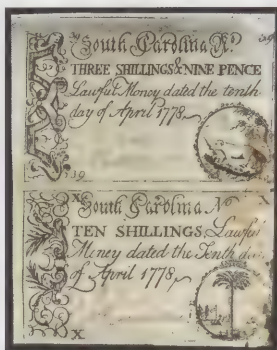 3/9 South Carolina No. 3/9
THREE SHILLINGS & NINE PENCE
Lawful Money dated the tenth
day of April 1778
3/9
X South Carolina No X
TEN SHILLINGS, Lawful
Money dated the Tenth day
of April 1778
X